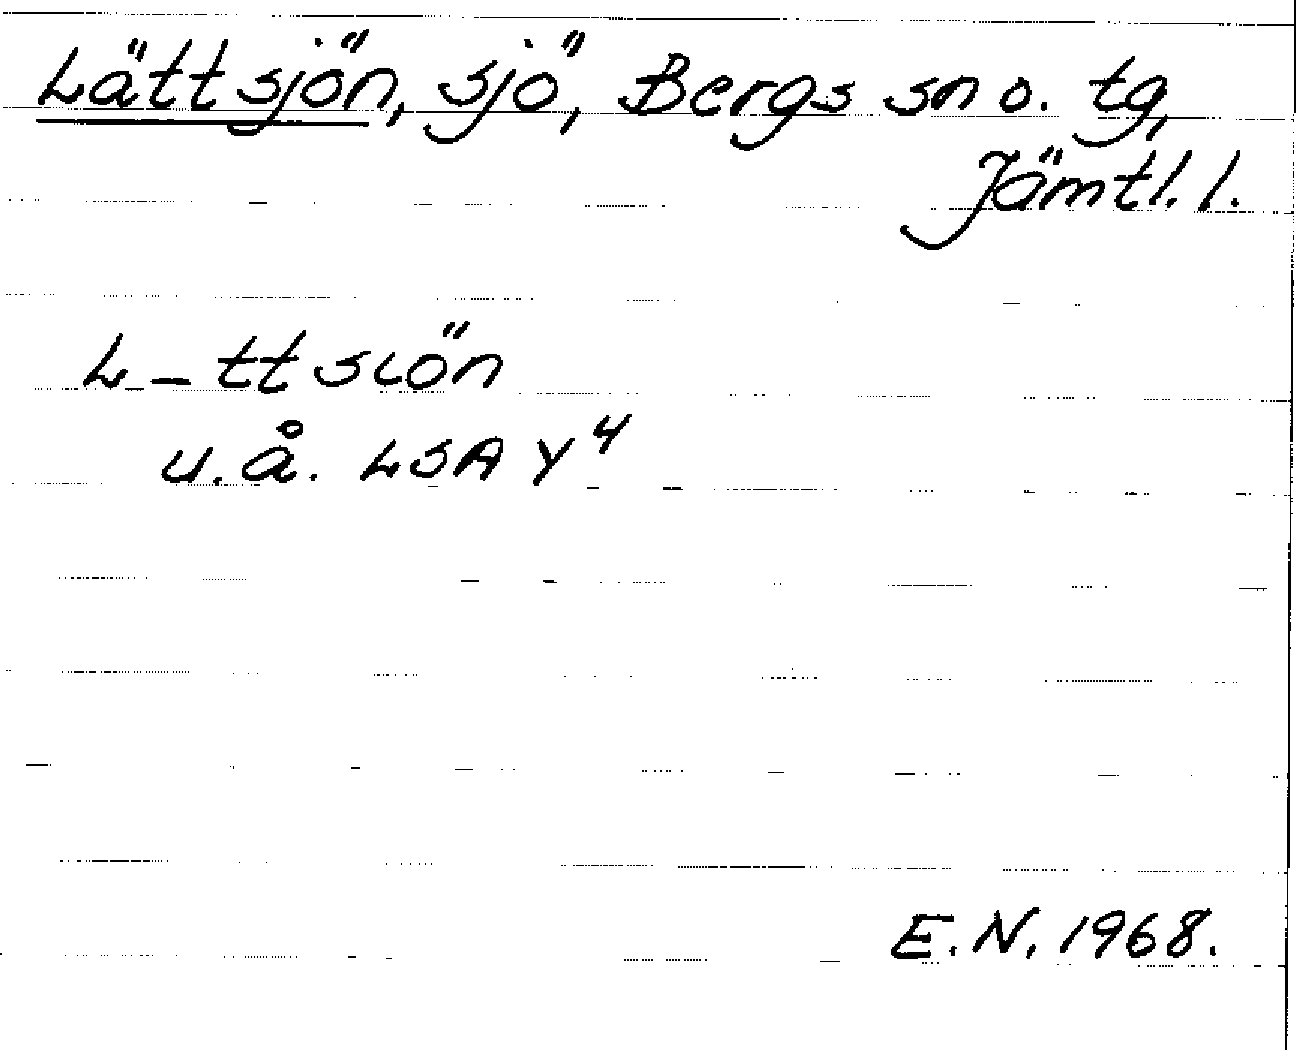 Lättsjön, sjö, Bergs sn o. tg,
Jämtl. l.
L_ttsiön
u.å. LSA Y4
E.N. 1968.